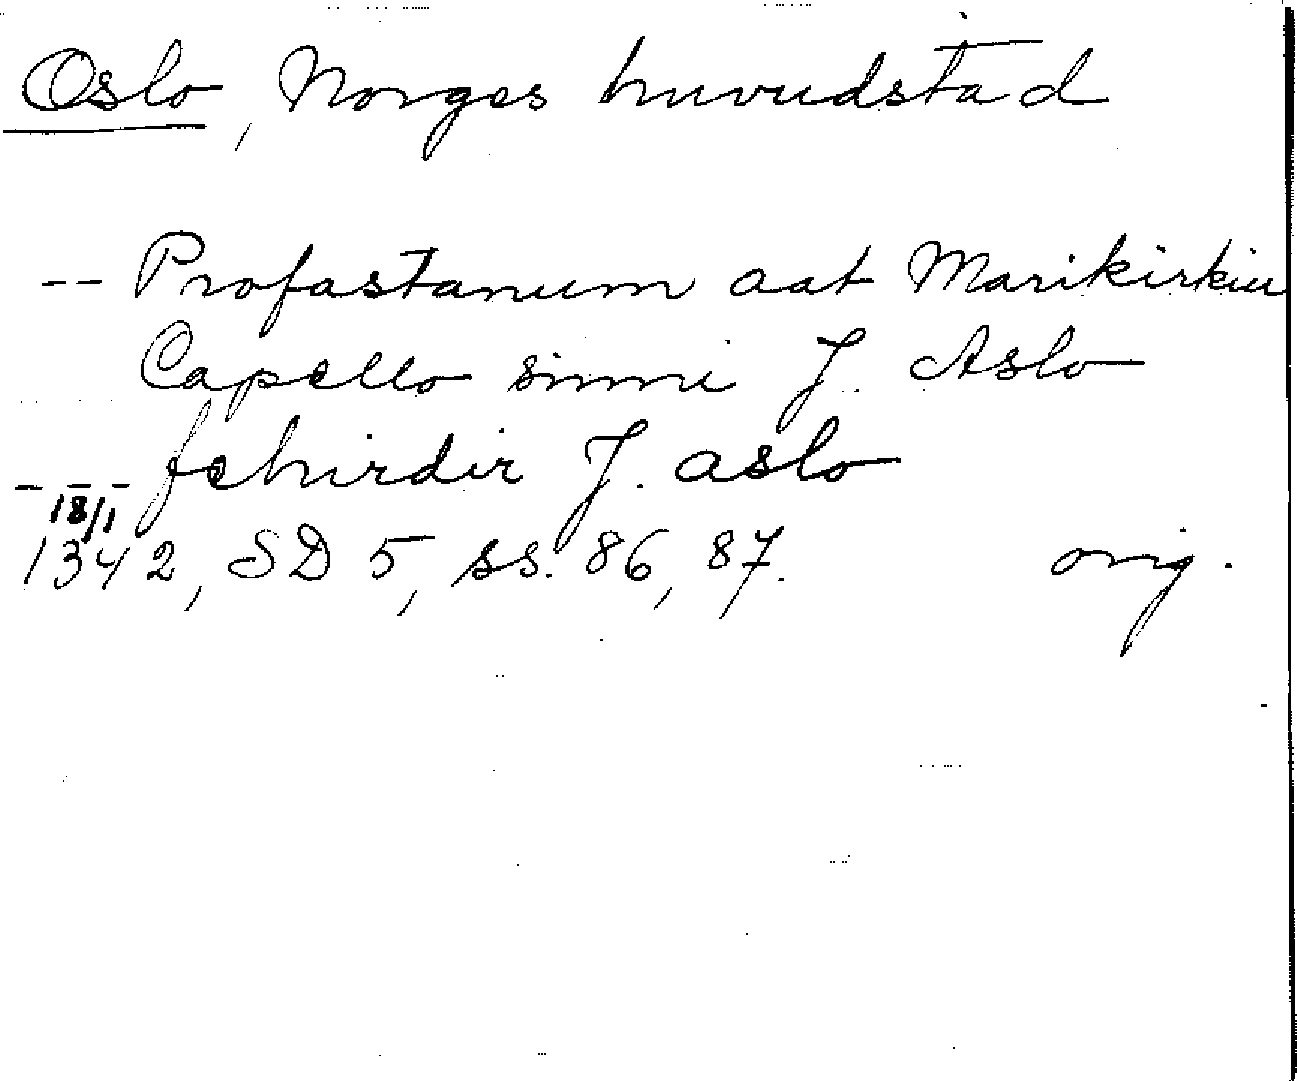 Oslo, Norges huvudstad
-- Profastanum aat Marikirkiu
Capello sinni J. Aslo
--- fehirdir J. aslo
18/1
1342, SD 5, ss. 86, 87. orig.